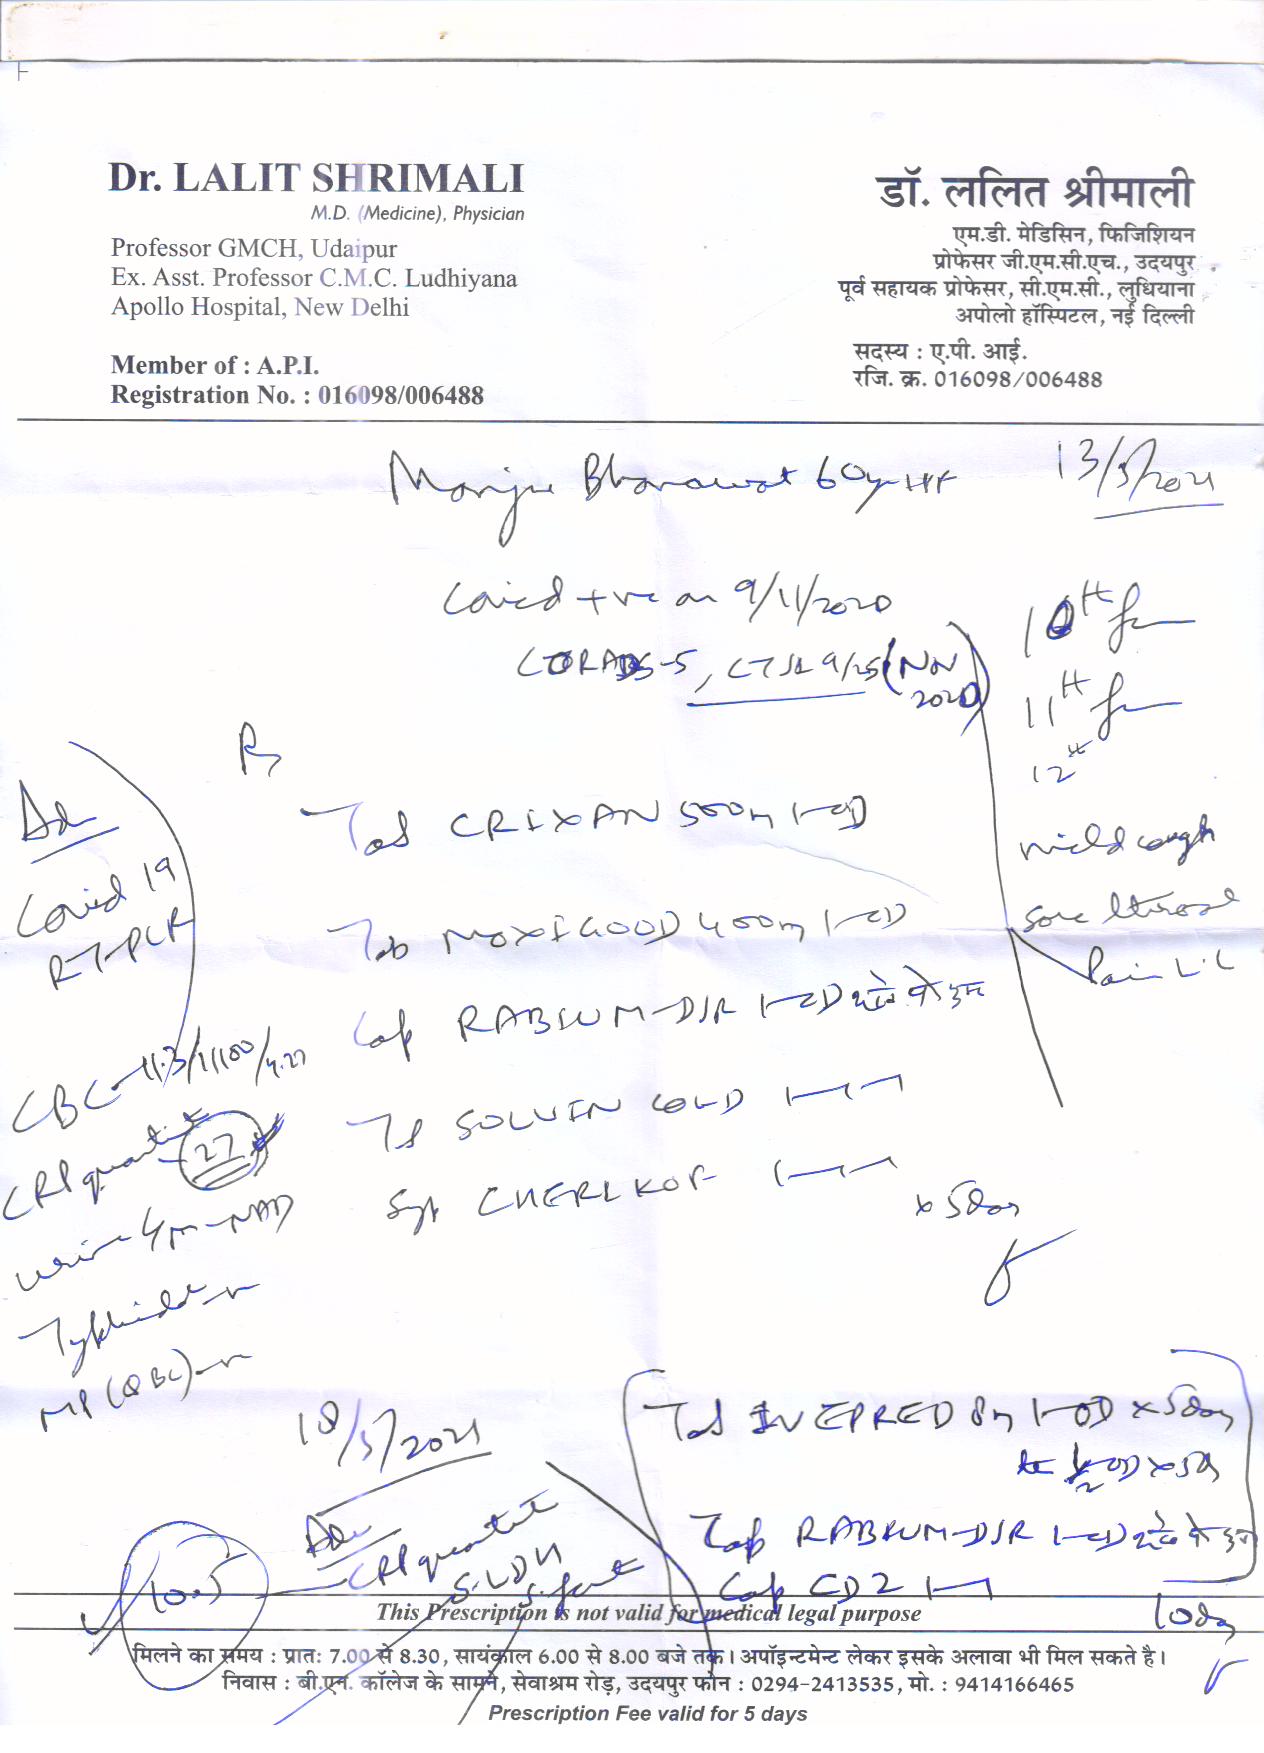 Dr. LALIT SHRIMALI
M.D. (Medicine), Physician
Professor GMCH, Udaipur
Ex. Asst. Professor C.M.C. Ludhiyana
Apollo Hospital, New Delhi
Member of : A.P.I.
Registration No. : 016098/006488
डॉ. ललित श्रीमाली
एम.डी. मेडिसिन, फिजिशियन
प्रोफेसर जी.एम.सी.एच., उदयपुर
पूर्व सहायक प्रोफेसर, सी.एम.सी., लुधियाना
अपोलो हॉस्पिटल, नई दिल्ली
सदस्य : ए.पी. आई.
रजि. क्र. 016098/006488
Manju Bhanawat 60yr
13/5/2021
Covid +ve on 9/11/2020
CORADS-5, CTSI 9/25 (Nov 2020)
10th
11th
12th
mild cough
sore throat
Pain L.L
Adv
Covid 19
RT-PCR
CBC-11.3/11100/4.27
CRP quantit 27
urine - NAD
Typhidot
MP (QBC)
Rx
Tab CRIXAN 500m 1-OD
Tab MOXIGOOD 400m 1-OD
Cap RABIUM-DSR 1-OD
Tab SOLVIN COLD 1-1-1
Syp CHERIKOF 1-1-1
x 5day
18/5/2021
Adv
CRP quantit
10.5
S. LDH
Tab IVEPRED 8m 1-OD x 5day
1/2 OD x 5d
Cap RABIUM-DSR 1-OD
Cap CD2 1-1
10day
This Prescription is not valid for medical legal purpose
मिलने का समय : प्रातः 7.00 से 8.30, सायंकाल 6.00 से 8.00 बजे तक। अपॉइन्टमेन्ट लेकर इसके अलावा भी मिल सकते है।
निवास : बी.एन. कॉलेज के सामने, सेवाश्रम रोड़, उदयपुर फोन : 0294-2413535, मो. : 9414166465
Prescription Fee valid for 5 days